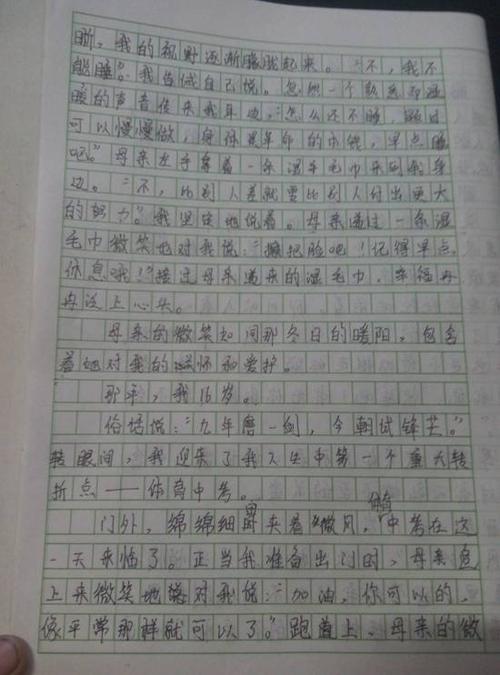 晰，我的视野逐渐朦胧起来。“不，我不
能睡”。我告诫自己说。忽然一个熟悉却温
暖的声音传来我耳边，“怎么还不睡，题目
可以慢慢做，身体是革命的本钱，早点睡
吧。”母亲左手拿着一条湿毛巾来到我身
边。“不，比别人差就要比别人付出更大
的努力”。我坚定地说着。母亲递过一条湿
毛巾微笑地对我说：“擦把脸吧！记得早点
休息哦！”接过母亲递来的湿毛巾，幸福再
再没上心头。
母亲的微笑如同那冬日的暖阳，包含
着她对我的关怀和爱护。
那年，我16岁。
俗话说：“九年磨一剑，今朝试锋芒。”
转眼间，我迎来了我人生中第一个重大转
折点——体育中考。
门外，绵绵细雨夹着微风，体育中考在这
一天来临了。正当我准备出门时，母亲
上来微笑地对我说：“加油，你可以的，
像平常那样就可以了”。跑道上，母亲的微